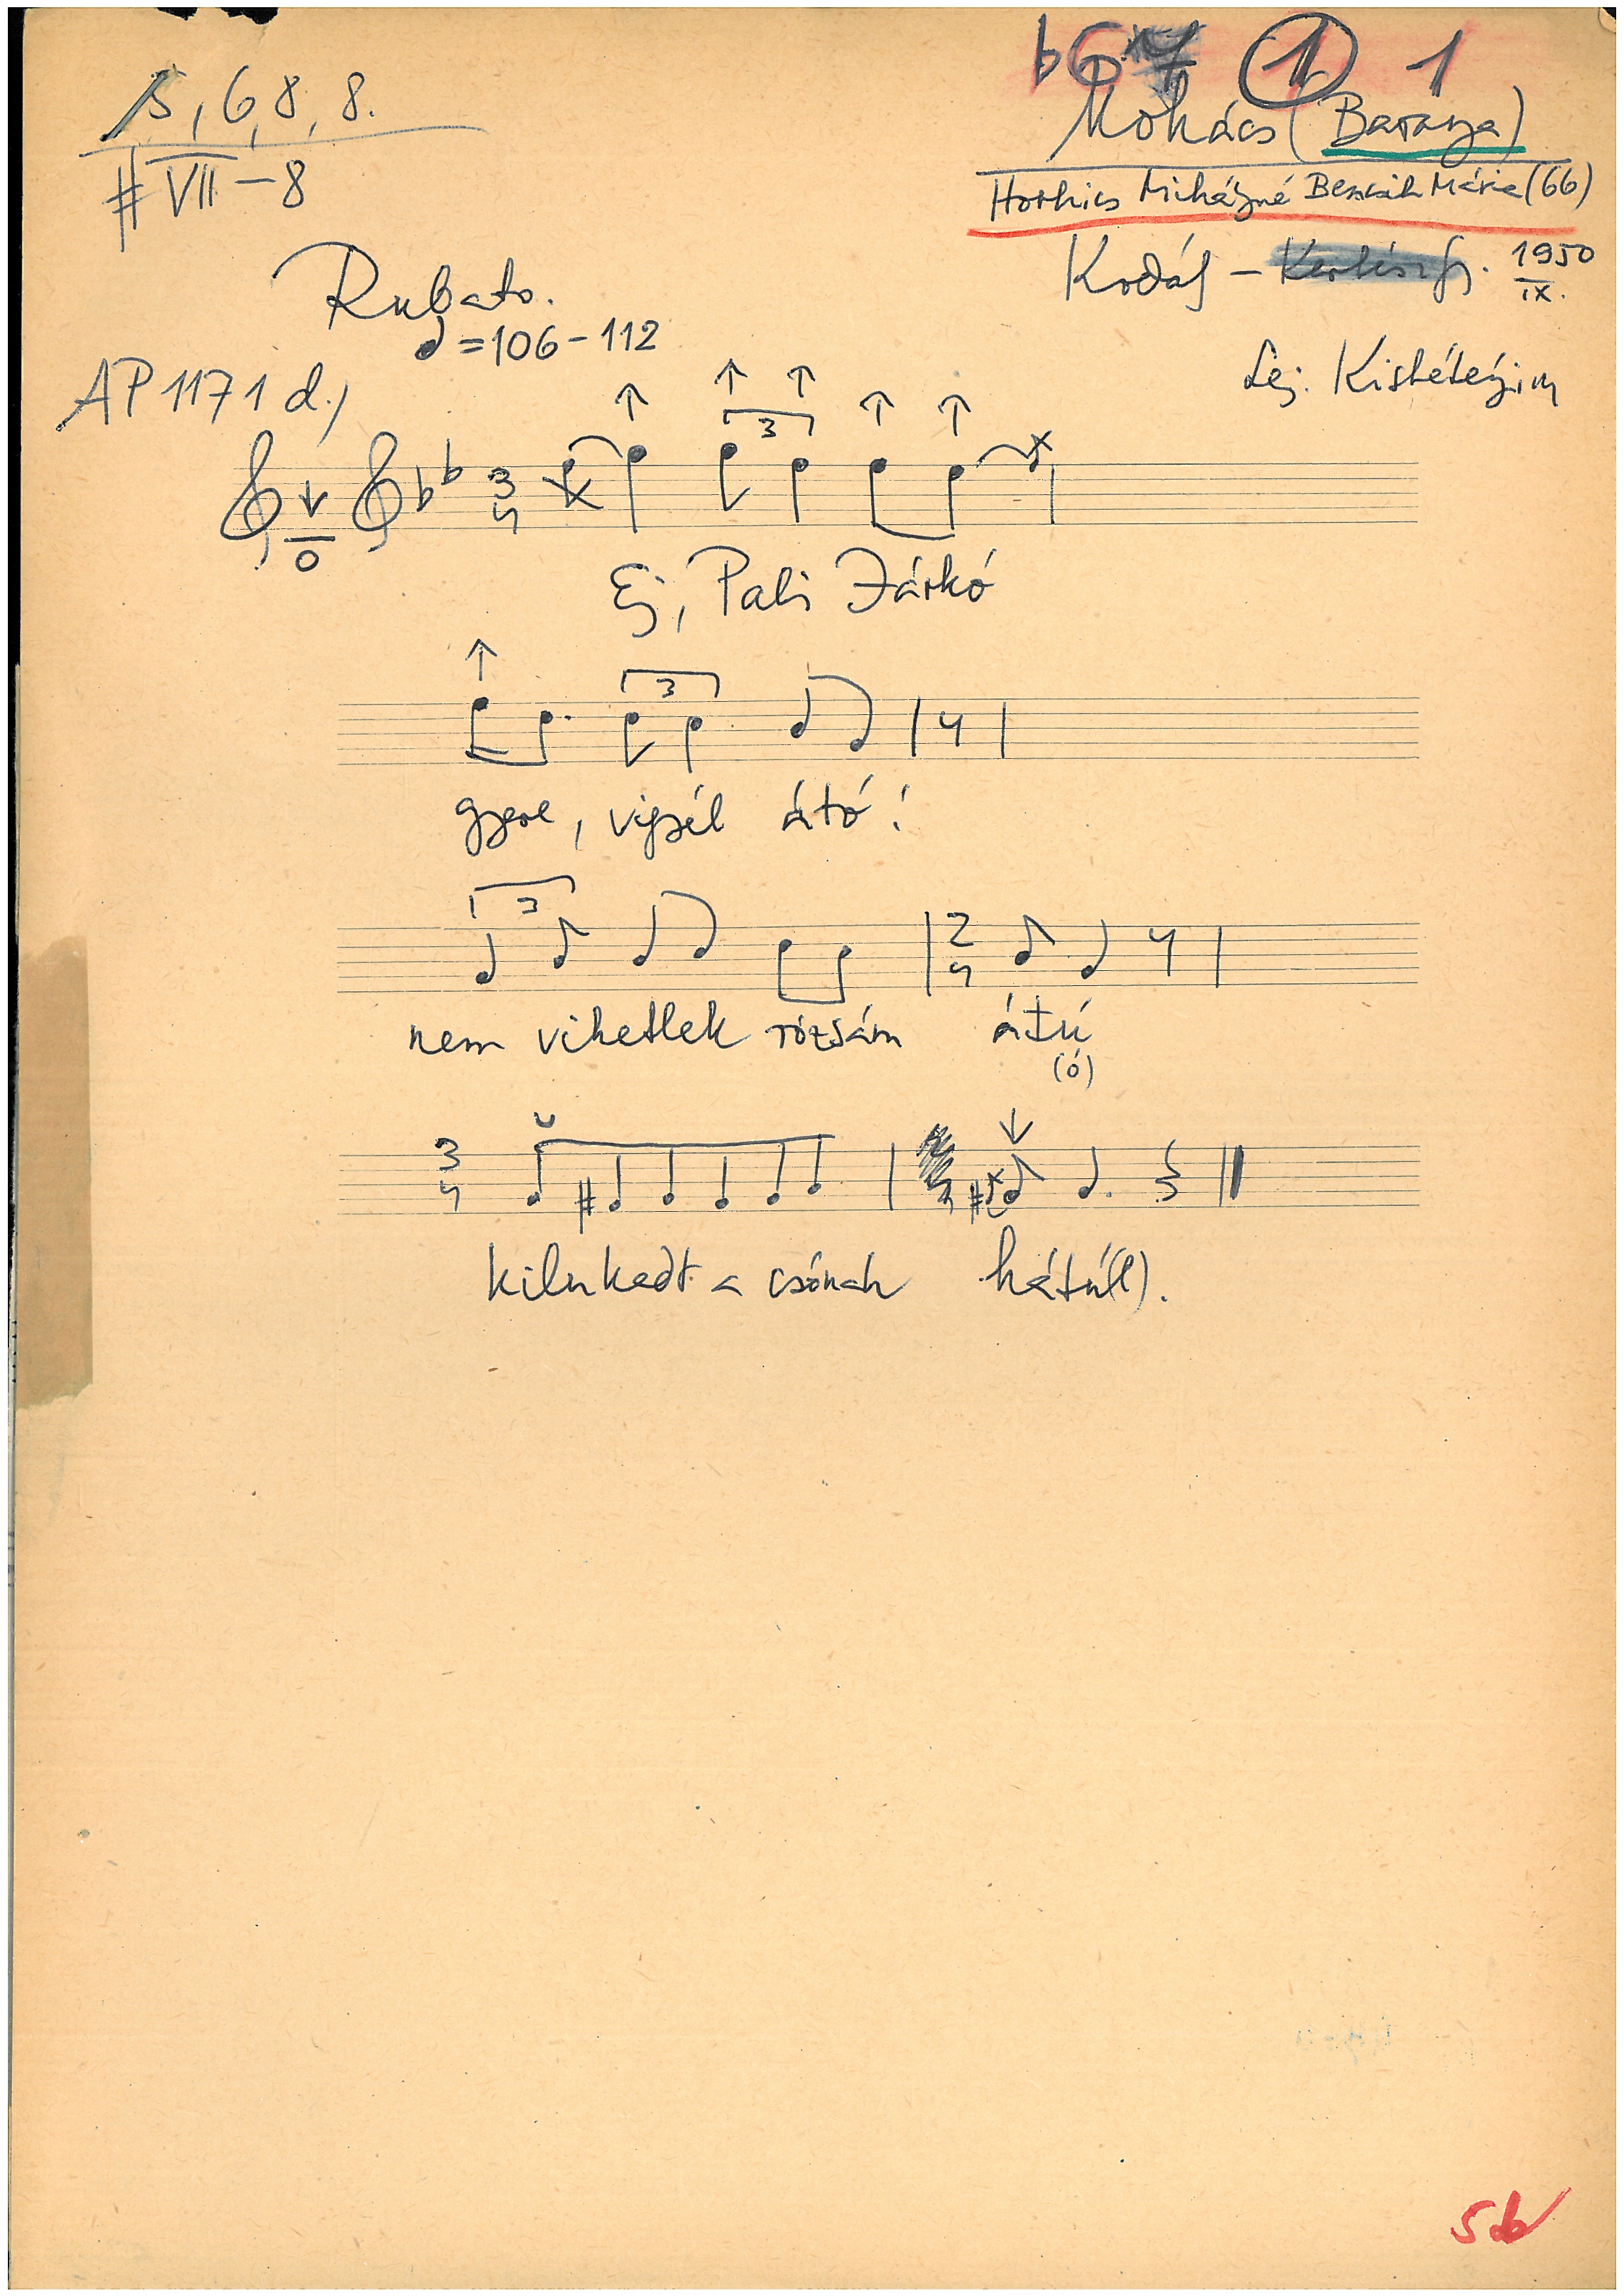 5, 6, 8, 8.
# VII - 8
b6 1 1
Mohács (Baranya)
Horhics Mihályné Bencsik Mária (66)
Kodály - Kertész Gy. 1950
IX.
Rubato.
♩ = 106 - 112
AP 1171 d.)
Lej. Kishételyin
3
3 4
Ej, Pali Járkó
3
gyere, vigyél átó!
3
2 4
nem vihetlek rózsám átú
(ó)
3 4
kilukadt a csónak hátú(l).